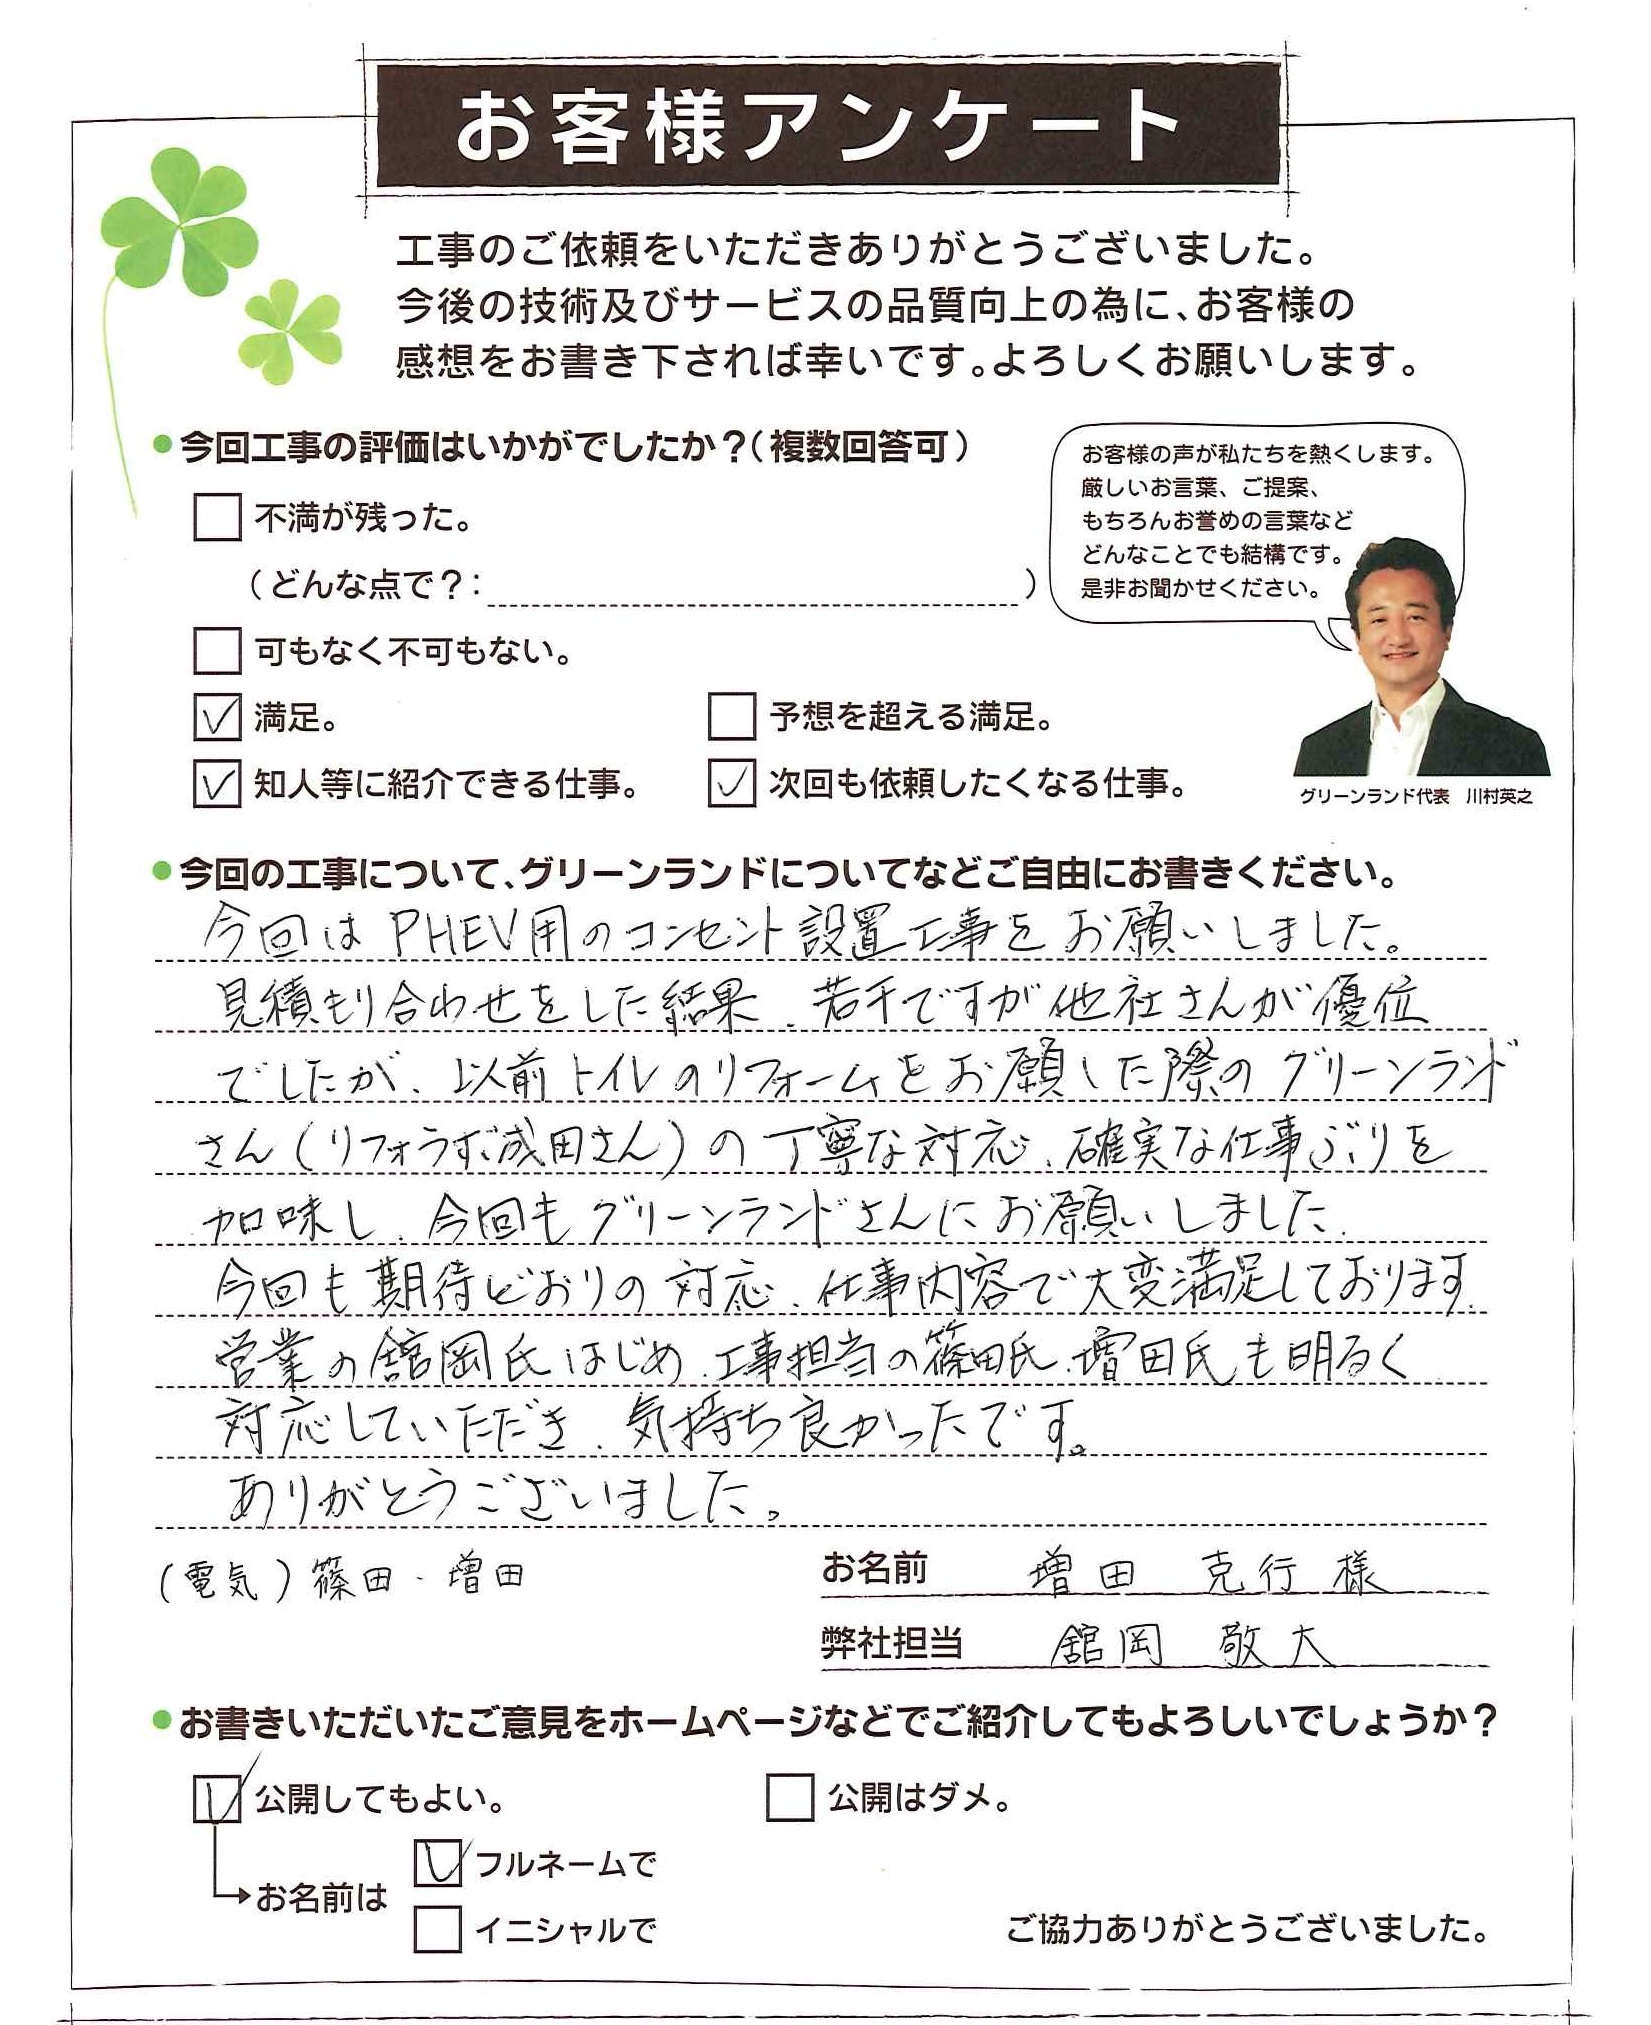 お客様アンケート
工事のご依頼をいただきありがとうございました。
今後の技術及びサービスの品質向上の為に、お客様の
感想をお書き下されば幸いです。よろしくお願いします。
●今回工事の評価はいかがでしたか？（複数回答可）
不満が残った。
（どんな点で？：　）
可もなく不可もない。
満足。
予想を超える満足。
知人等に紹介できる仕事。
次回も依頼したくなる仕事。
お客様の声が私たちを熱くします。
厳しいお言葉、ご提案、
もちろんお誉めの言葉など
どんなことでも結構です。
是非お聞かせください。
グリーンランド代表　川村英之
●今回の工事について、グリーンランドについてなどご自由にお書きください。
今回はPHEV用のコンセント設置工事をお願いしました。
見積もり合わせをした結果、若干ですが他社さんが優位
でしたが、以前トイレのリフォームをお願した際のグリーンランド
さん（リフォうず成田さん）の丁寧な対応、確実な仕事ぶりを
加味し、今回もグリーンランドさんにお願いしました。
今回も期待どおりの対応、仕事内容で大変満足しております。
営業の舘岡氏はじめ、工事担当の篠田氏、増田氏も明るく
対応していただき、気持ち良かったです。
ありがとうございました。
（電気）篠田・増田
お名前　増田　克行様
弊社担当　舘岡　敬大
●お書きいただいたご意見をホームページなどでご紹介してもよろしいでしょうか？
公開してもよい。
公開はダメ。
お名前は
フルネームで
イニシャルで
ご協力ありがとうございました。